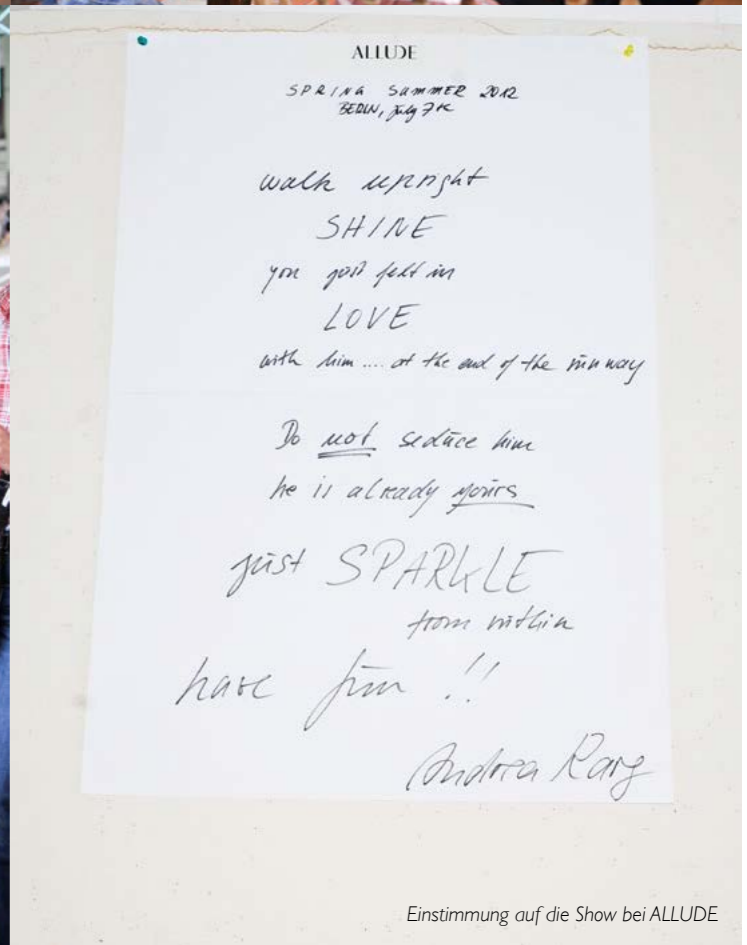 ALLUDE
SPRING SUMMER 2012
BERLIN, July 7th
walk upright
SHINE
you just felt in
LOVE
with him .... at the end of the runway
Do not seduce him
he is already yours
just SPARKLE
from within
have fun !!
Andrea Karg
Einstimmung auf die Show bei ALLUDE